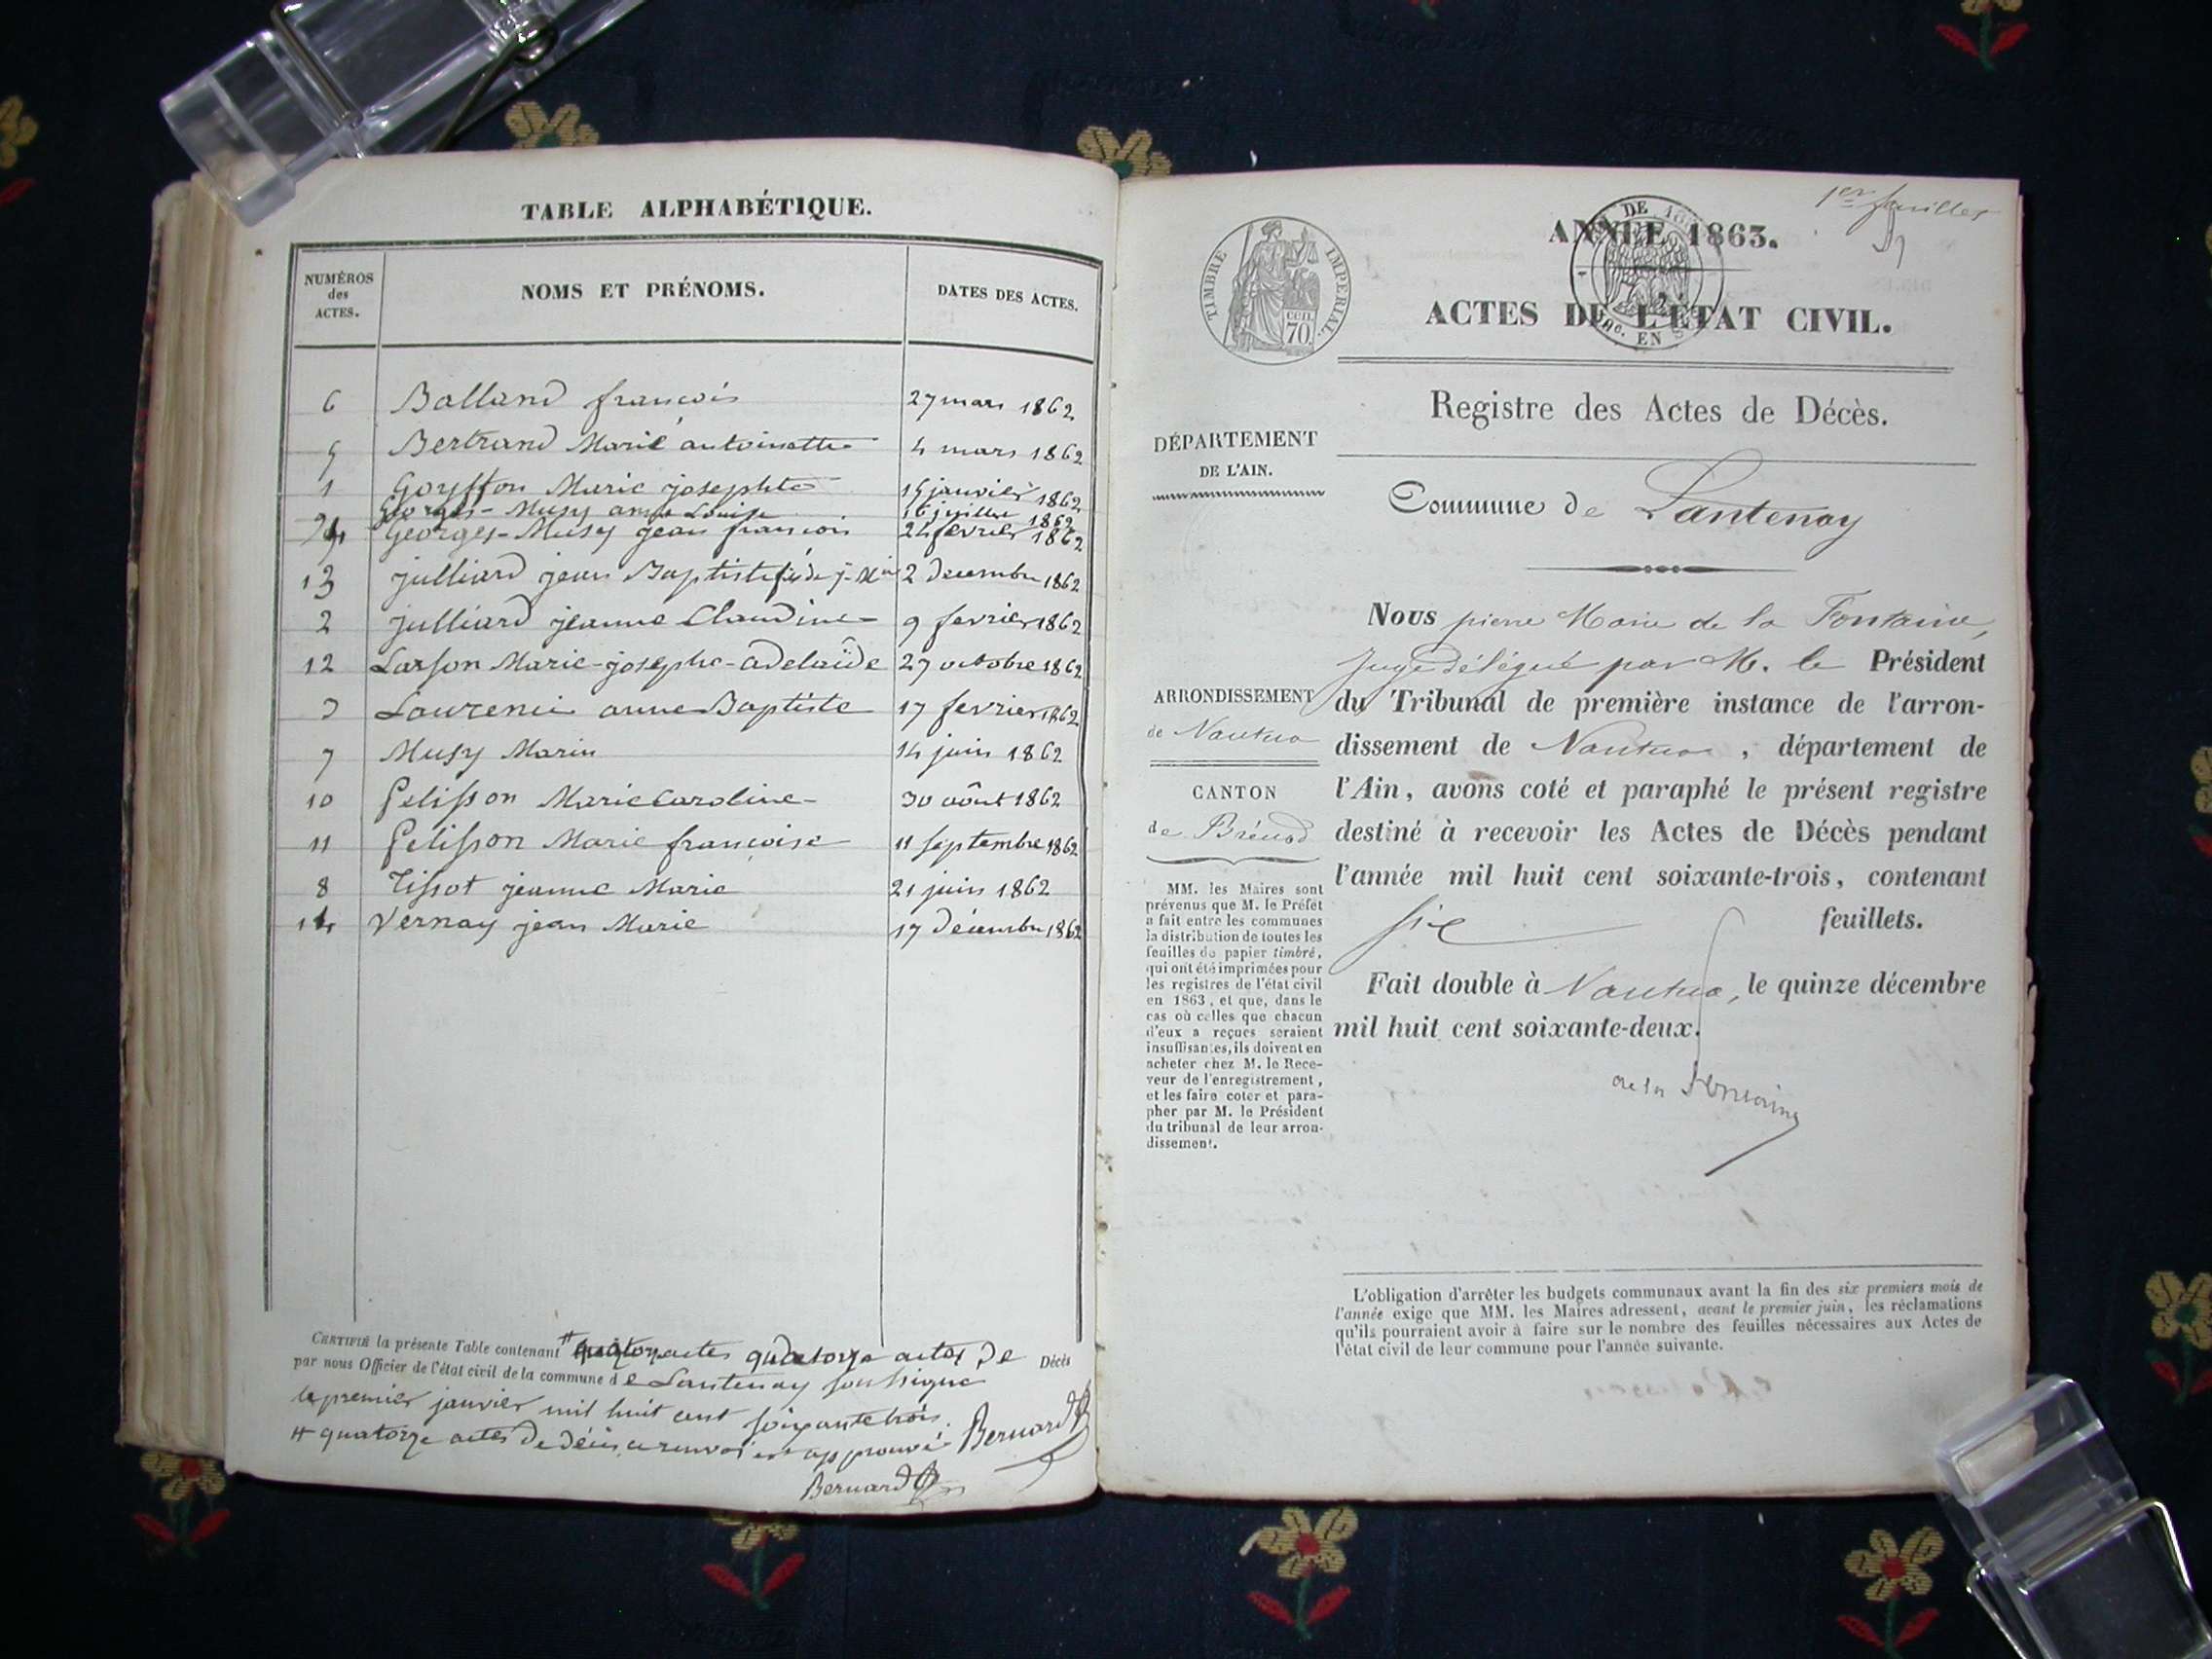 TABLE ALPHABÉTIQUE.
NUMÉROS
des
ACTES.
NOMS ET PRÉNOMS.
DATES DES ACTES.
6 Balland françois 27 mars 1862
5 Bertrand Marie antoinette 4 mars 1862
1 Goyffon Marie josephte 15 janvier 1862
9 Georges-Musy anne Louise 16 juillet 1862
4 Georges-Musy jean françois 24 fevrier 1862
13 julliard jean Baptiste 2 decembre 1862
2 julliard jeanne Claudine 9 fevrier 1862
12 Larson Marie-josephe-adelaïde 27 octobre 1862
3 Laurenci anne Baptiste 17 fevrier 1862
7 Musy Marin 14 juin 1862
10 Pelisson Marie Caroline 30 août 1862
11 Pelisson Marie françoise 11 septembre 1862
8 Tissot jeanne Marie 21 juin 1862
14 Vernay jean Marie 17 décembre 1862
CERTIFIÉ la présente Table contenant # actes quatorze actes de Décès
par nous Officier de l'état civil de la commune de Lantenay soussigné
le premier janvier mil huit cent soixante trois.
# quatorze actes de décès ce renvoi est approuvé Bernard
Bernard
1er feuillet
TIMBRE IMPÉRIAL.
CEN.
70
DE
EN
ANNÉE 1863.
ACTES DE L'ÉTAT CIVIL.
Registre des Actes de Décès.
Commune de Lantenay
DÉPARTEMENT
DE L'AIN.
ARRONDISSEMENT
de Nantua
CANTON
de Brénod
MM. les Maires sont
prévenus que M. le Préfet
a fait entre les communes
la distribution de toutes les
feuilles de papier timbré,
qui ont été imprimées pour
les registres de l'état civil
en 1863, et que, dans le
cas où celles que chacun
d'eux a reçues seraient
insuffisantes, ils doivent en
acheter chez M. le Rece-
veur de l'enregistrement,
et les faire coter et para-
pher par M. le Président
du tribunal de leur arron-
dissement.
Nous pierre Marie de la Fontaine,
Juge délégué par M. le Président
du Tribunal de première instance de l'arron-
dissement de Nantua, département de
l'Ain, avons coté et paraphé le présent registre
destiné à recevoir les Actes de Décès pendant
l'année mil huit cent soixante-trois, contenant
six feuillets.
Fait double à Nantua, le quinze décembre
mil huit cent soixante-deux.
de la Fontaine
L'obligation d'arrêter les budgets communaux avant la fin des six premiers mois de
l'année exige que MM. les Maires adressent, avant le premier juin, les réclamations
qu'ils pourraient avoir à faire sur le nombre des feuilles nécessaires aux Actes de
l'état civil de leur commune pour l'année suivante.